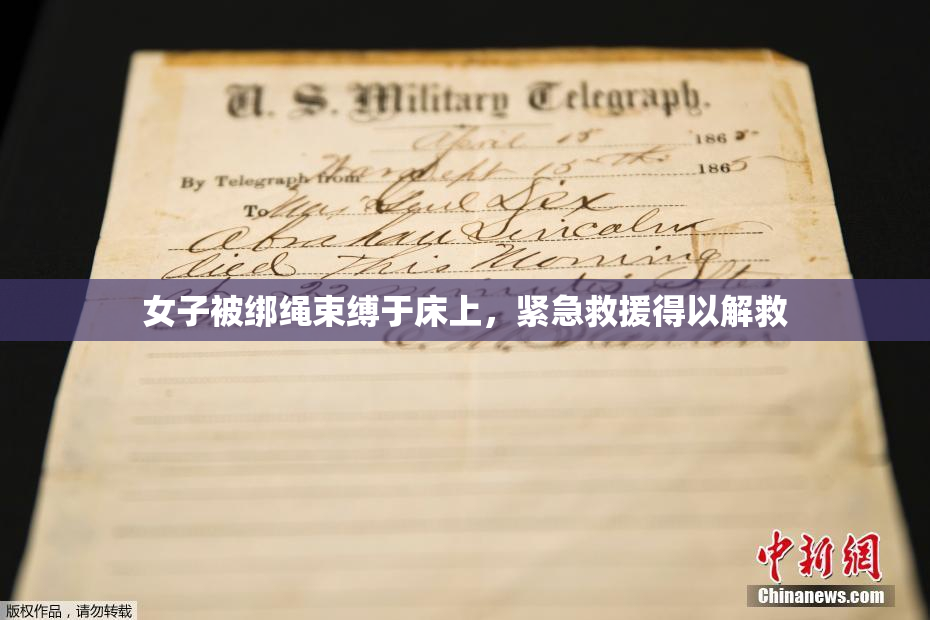 U. S. Military Telegraph.
April 15 1865.
By Telegraph from War Dept 15th 1865
To Maj Genl Dix
Abraham Lincoln
died This Morning
22 minutes after
女子被绑绳束缚于床上，紧急救援得以解救
E. M. Stanton
中新網
Chinanews.com
版权作品，请勿转载